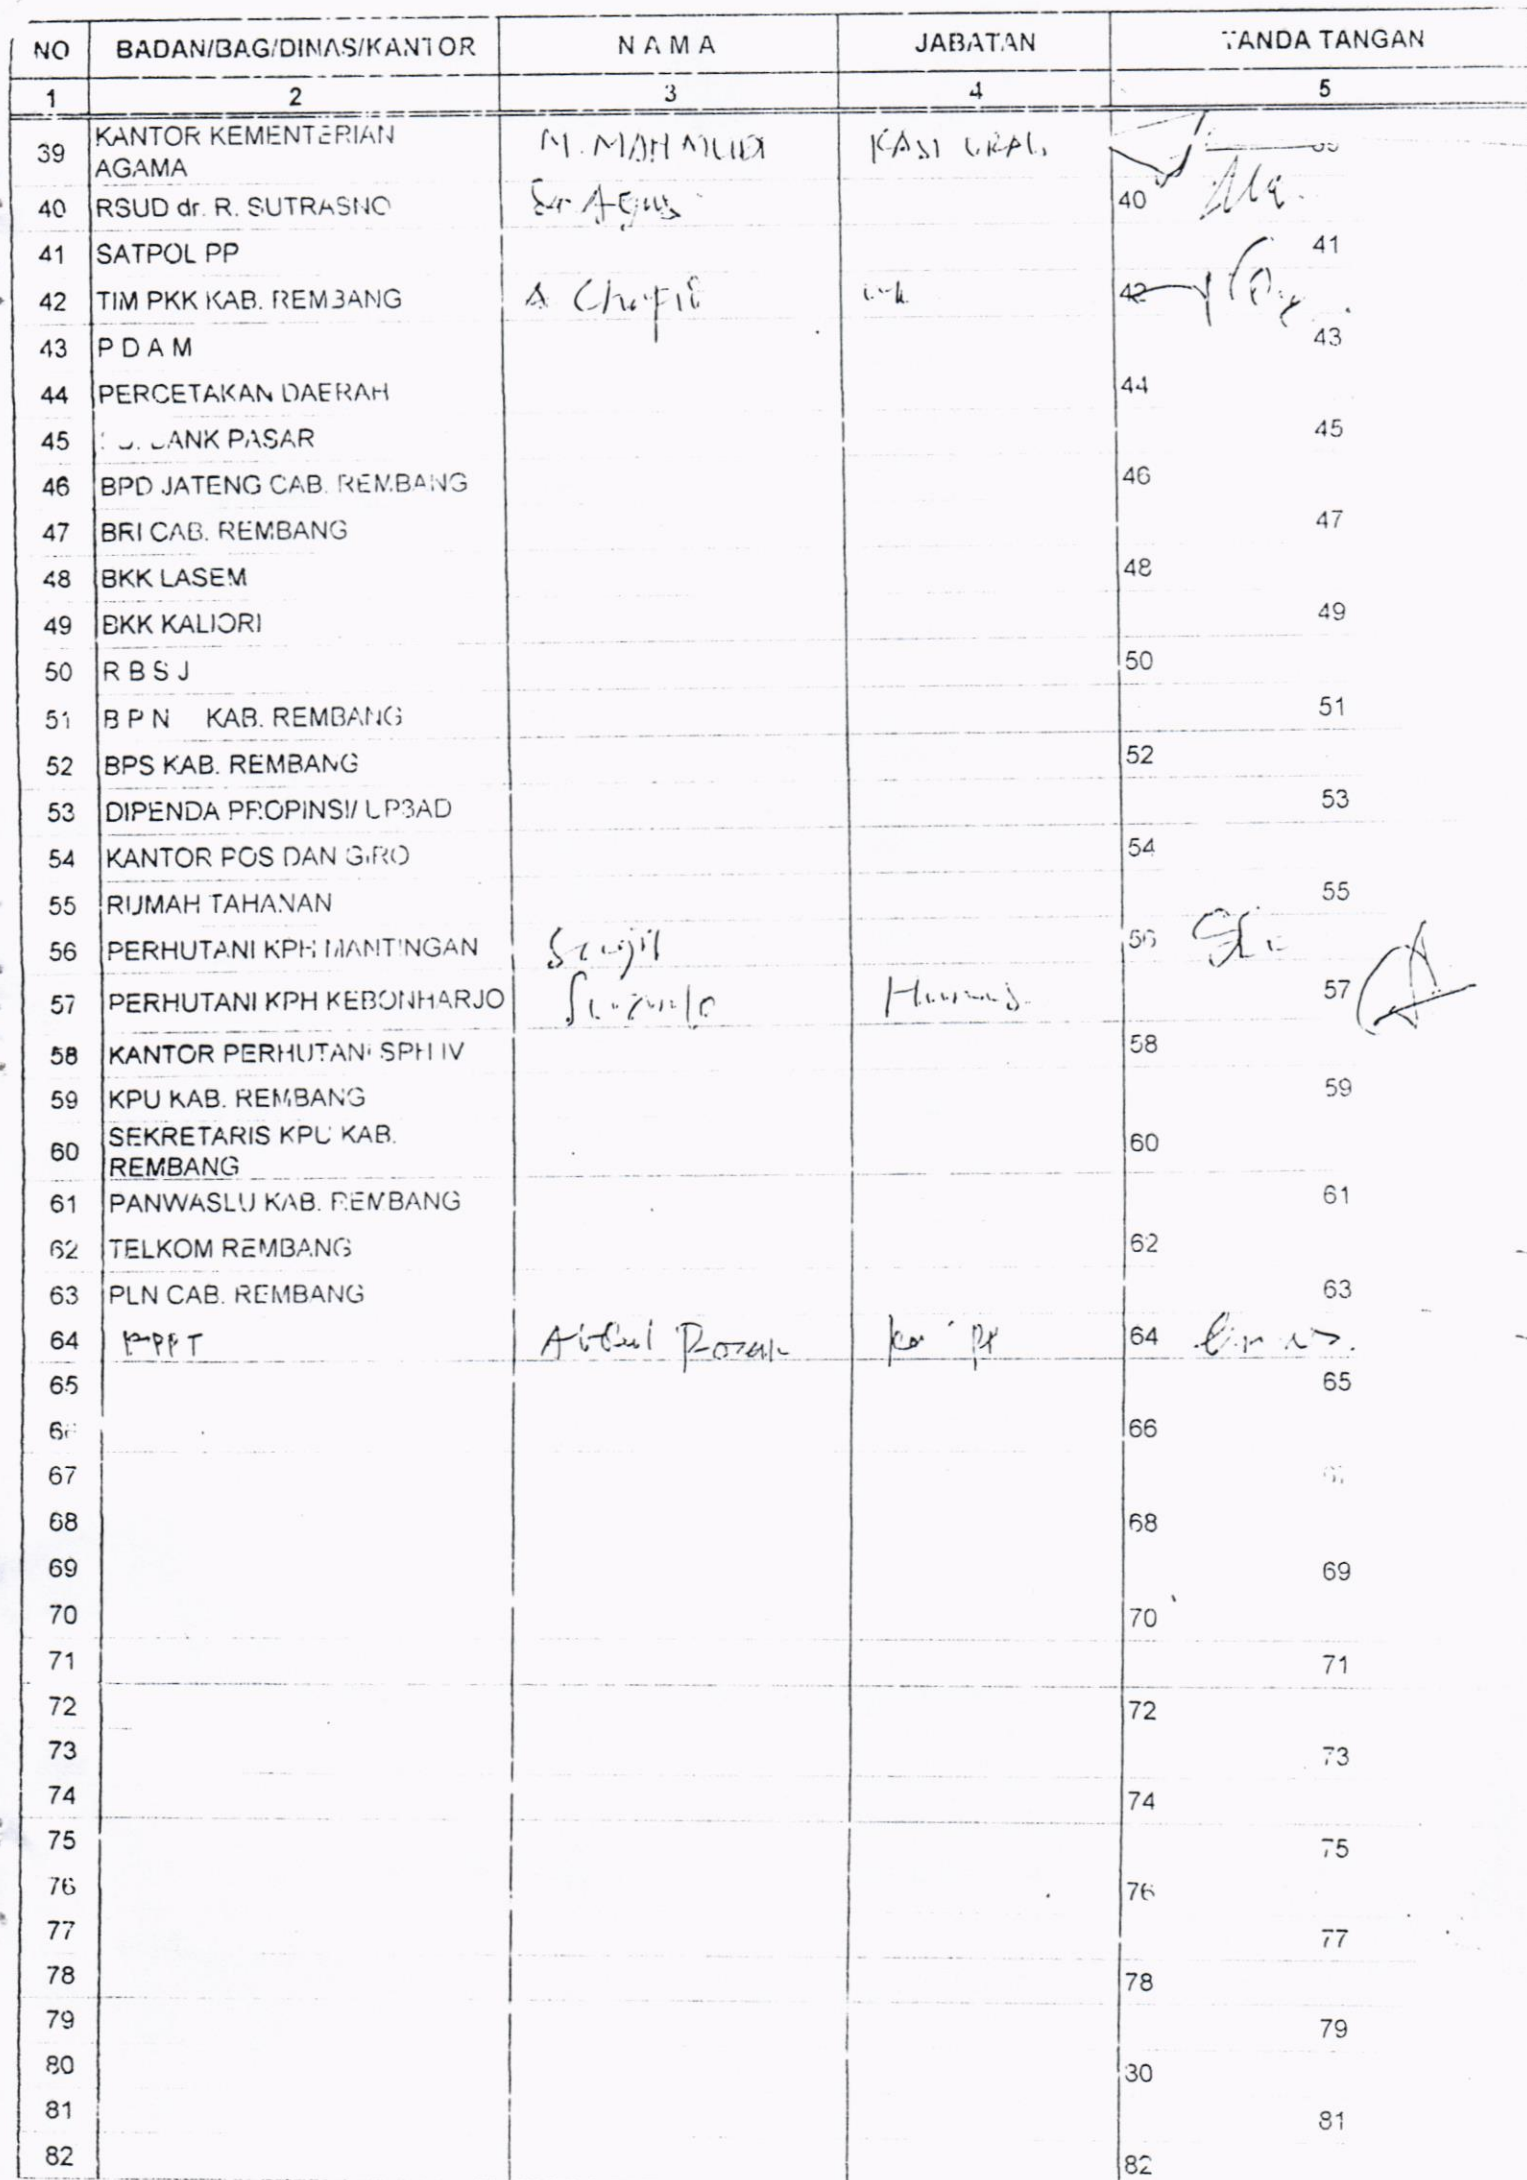 NO BADAN/BAG/DINAS/KANTOR N A M A JABATAN TANDA TANGAN
1 2 3 4 5
39 KANTOR KEMENTERIAN AGAMA M. MAHMUDI KASI
40 RSUD dr. R. SUTRASNO Agus 40
41 SATPOL PP 41
42 TIM PKK KAB. REMBANG A 42
43 P D A M 43
44 PERCETAKAN DAERAH 44
45 BANK PASAR 45
46 BPD JATENG CAB. REMBANG 46
47 BRI CAB. REMBANG 47
48 BKK LASEM 48
49 BKK KALIORI 49
50 R B S J 50
51 B P N KAB. REMBANG 51
52 BPS KAB. REMBANG 52
53 DIPENDA PROPINSI/ UP3AD 53
54 KANTOR POS DAN GIRO 54
55 RUMAH TAHANAN 55
56 PERHUTANI KPH MANTINGAN 56
57 PERHUTANI KPH KEBONHARJO Humas. 57
58 KANTOR PERHUTANI SPH IV 58
59 KPU KAB. REMBANG 59
60 SEKRETARIS KPU KAB. REMBANG 60
61 PANWASLU KAB. REMBANG 61
62 TELKOM REMBANG 62
63 PLN CAB. REMBANG 63
64 KPPT Abdul Rozak 64
65 65
66 66
67 67
68 68
69 69
70 70
71 71
72 72
73 73
74 74
75 75
76 76
77 77
78 78
79 79
80 80
81 81
82 82